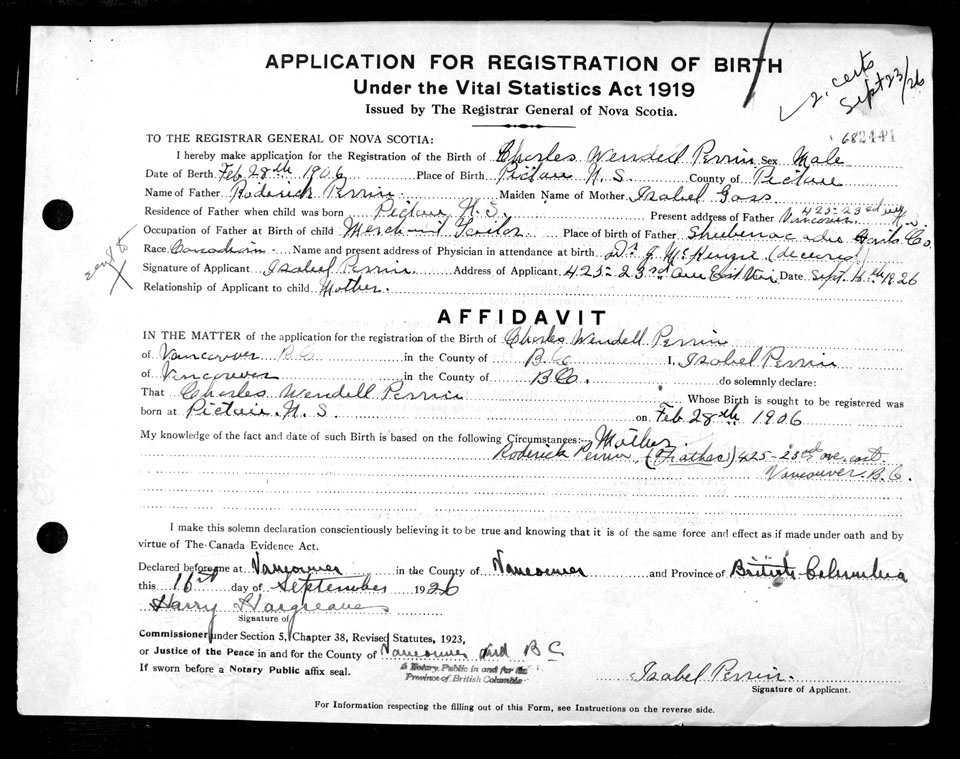 APPLICATION FOR REGISTRATION OF BIRTH
Under the Vital Statistics Act 1919
Issued by The Registrar General of Nova Scotia.
2. certs
Sept 23/26
TO THE REGISTRAR GENERAL OF NOVA SCOTIA:
I hereby make application for the Registration of the Birth of Charles Wendell Perrin Sex Male
Date of Berth Feb 28th 1906 Place of Birth Pictou N.S. County of Pictou
Name of Father Roderick Perrin Maiden Name of Mother Isabel Goss
Residence of Father when child was born Pictou, N.S. Present address of Father Vancouver 425-23rd
Occupation of Father at Birth of child Merchant Tailor Place of birth of Father Shubenacadie Hants Co.
Race Canadian Name and present address of Physician in attendance at birth Dr J McKenzie (deceased)
Signature of Applicant Isabel Perrin Address of Applicant 425-23rd Ave East Van Date Sept. 1926
Relationship of Applicant to child Mother.
AFFIDAVIT
IN THE MATTER of the application for the registration of the Birth of Charles Wendell Perrin
of Vancouver B C in the County of B.C. I, Isabel Perrin
of Vancouver in the County of B.C. do solemnly declare:
That Charles Wendell Perrin Whose Birth is sought to be registered was
born at Pictou. N. S. on Feb 28th 1906
My knowledge of the fact and date of such Birth is based on the following Circumstances:- Mother.
Roderick Perrin (Father) 425-23rd ave. east.
Vancouver. B.C.
I make this solemn declaration conscientiously believing it to be true and knowing that it is of the same force and effect as if made under oath and by
virtue of The Canada Evidence Act.
Declared before me at Vancouver in the County of Vancouver and Province of British Columbia
this 16th day of September 1926
Harry Hargreaves
Signature of
Commissioner under Section 5, Chapter 38, Revised Statutes, 1923,
or Justice of the Peace in and for the County of Vancouver and B C
If sworn before a Notary Public affix seal.
A Notary Public in and for the
Province of British Columbia
Isabel Perrin.
Signature of Applicant.
For Information respecting the filling out of this Form, see Instructions on the reverse side.